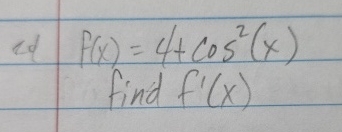 f(x) = 4+cos²(x)
find f'(x)